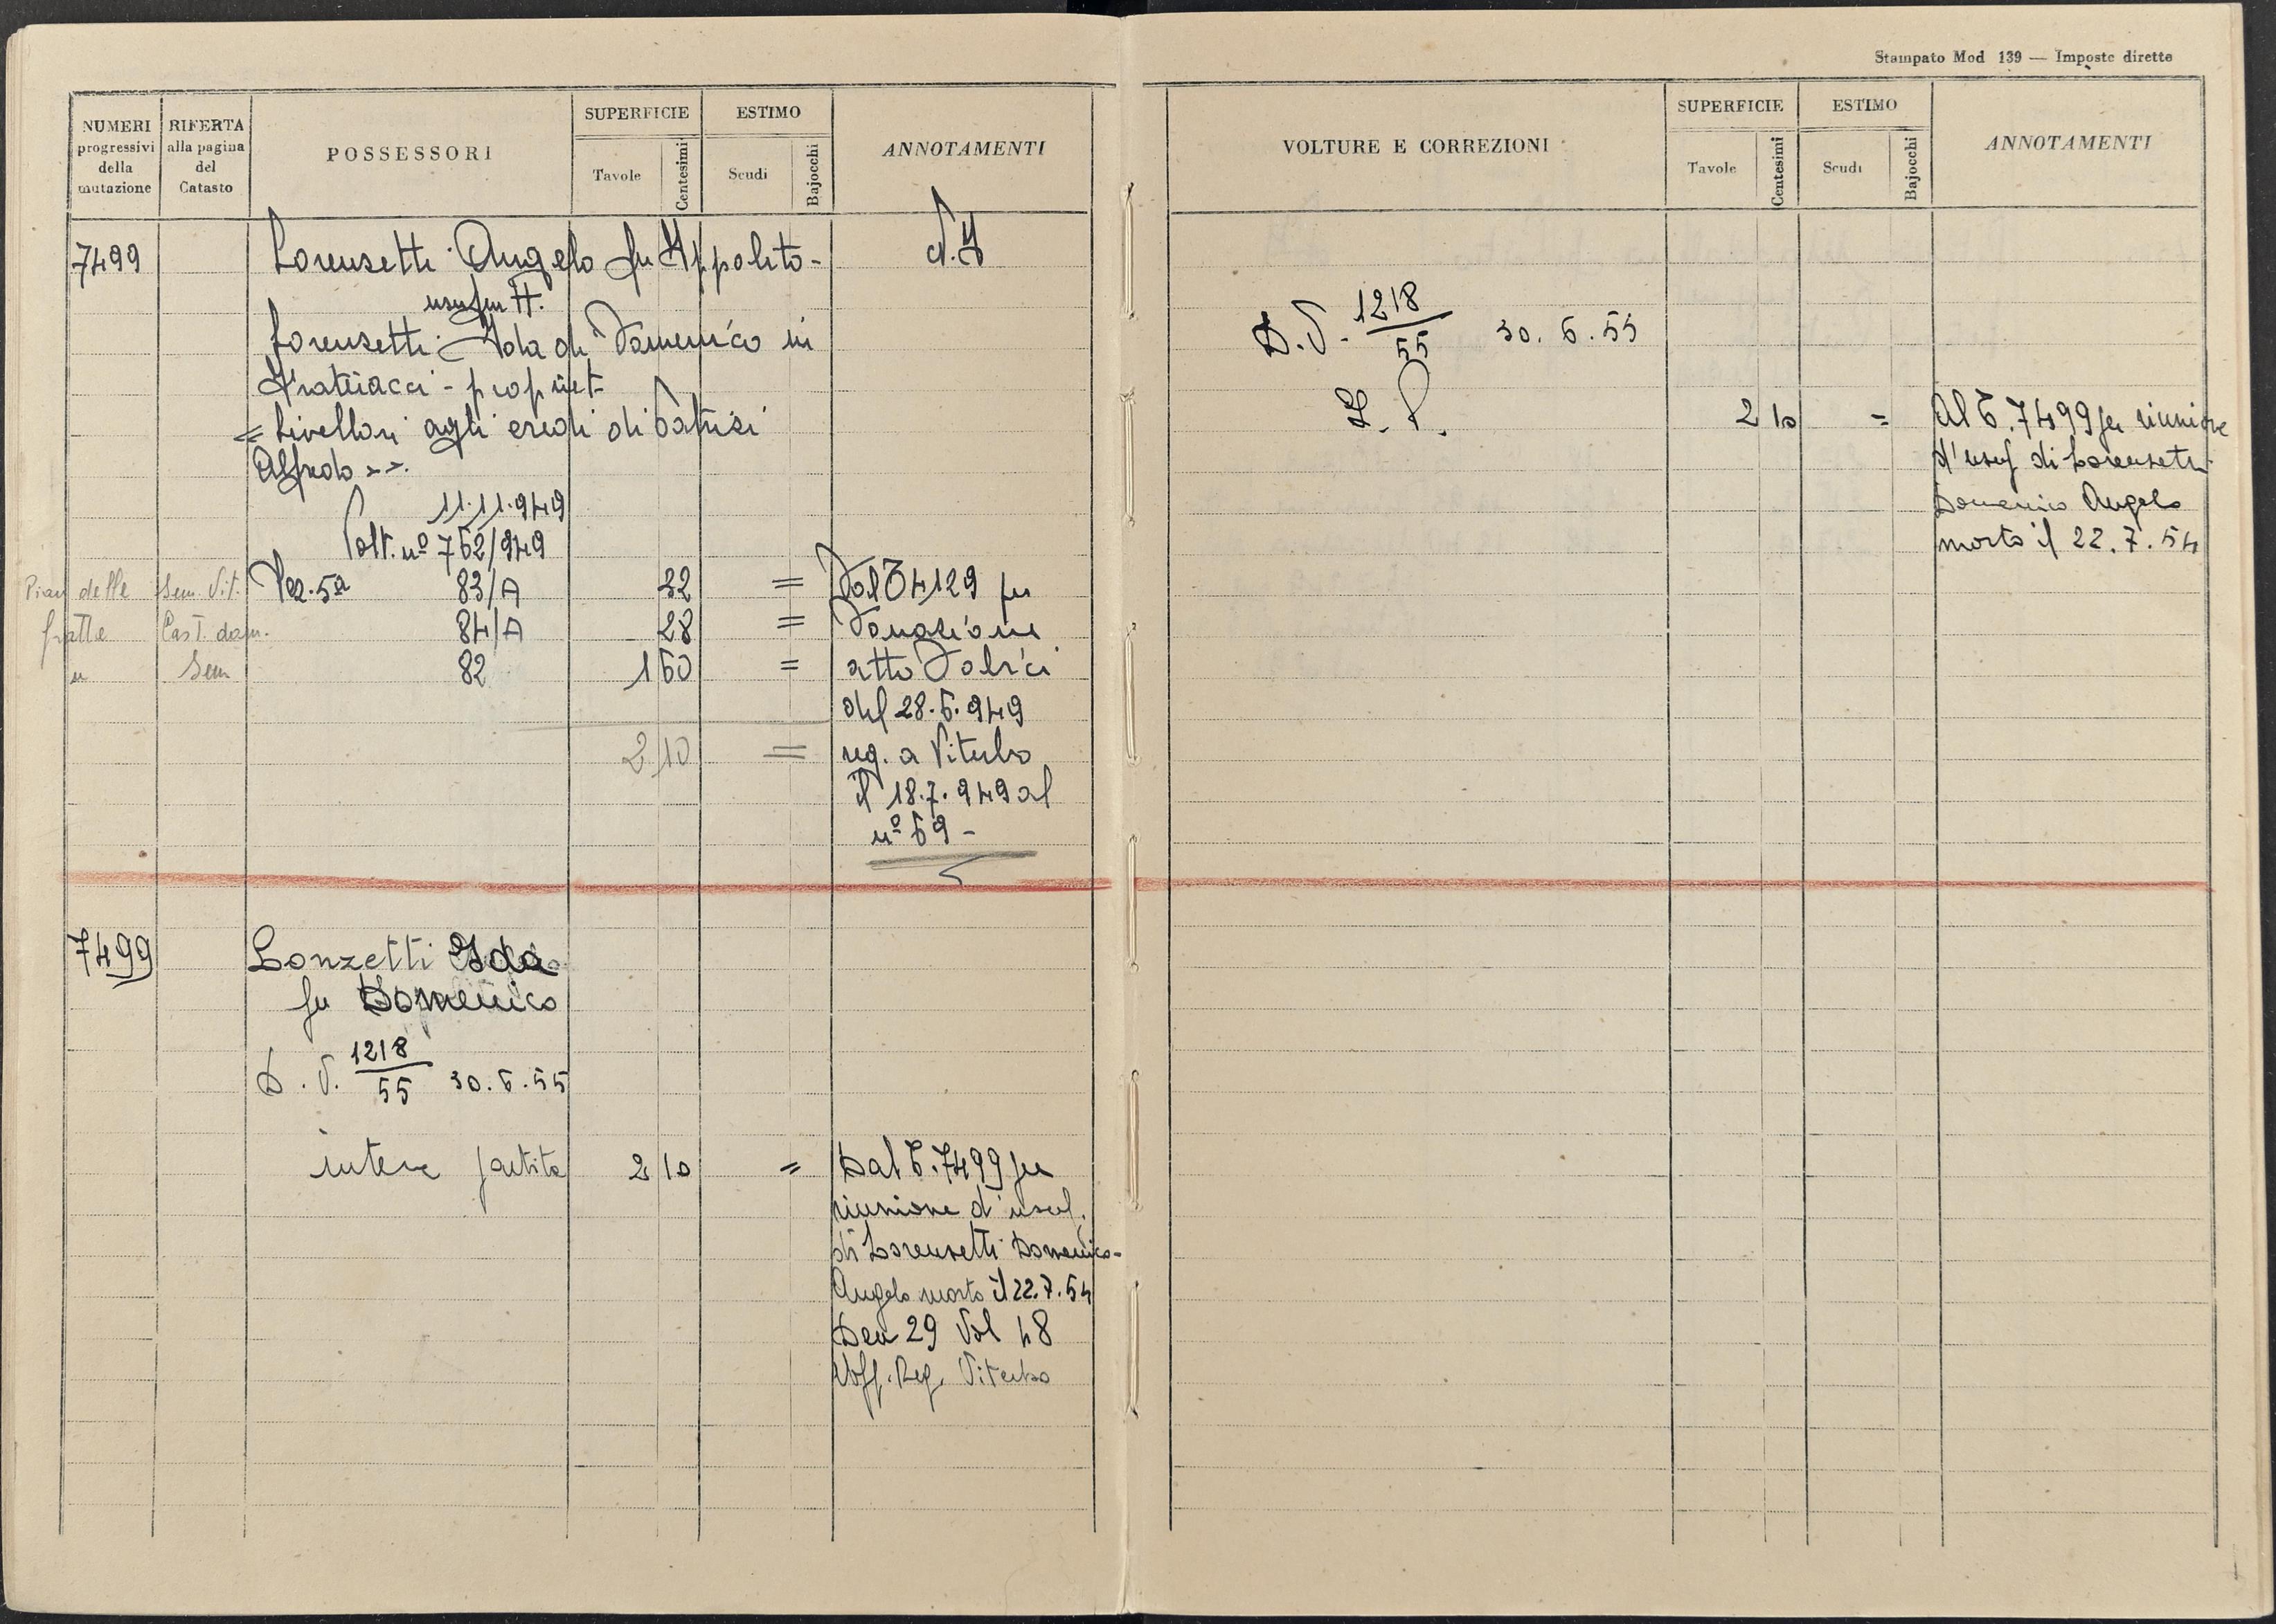 Stampato Mod 139 — Imposte dirette
NUMERI progressivi della mutazione
RIFERTA alla pagina del Catasto
POSSESSORI
SUPERFICIE
Tavole
Centesimi
ESTIMO
Scudi
Bajocchi
ANNOTAMENTI
7499
Lorenzetti Angelo fu Ippolito -
usufrutt.
Lorenzetti Ida di Domenico in
Fratiiacci - propriet
= livellari agli eredi di Patrizi
Alfredo
11.11.949
Volt. nº 762/949
Pian delle Sem. Vit. Sez. 5a 83/A 22 = Dal T 4129 per
fratte Past. dom. 84/A 28 = Donazione
" Sem 82 1 60 = atto Dolci
del 28.6.949
2 10 = reg. a Viterbo
il 18.7.949 al
nº 69 -
7499
Lonzetti Ida
fu Domenico
D. V. 1218/55 30.6.55
intera partita 2 10 = Dal T. 7499 per
riunione d'usuf.
di Lorenzetti Domenico-
Angelo morto il 22.7.54
Den 29 Vol 48
Uff. Reg. Viterbo
VOLTURE E CORREZIONI
SUPERFICIE
Tavole
Centesimi
ESTIMO
Scudi
Bajocchi
ANNOTAMENTI
D. V. 1218/55 30.6.55
I. P. 2 10 = Al T. 7499 per riunione
d'usuf di Lorenzetti
Domenico Angelo
morto il 22.7.54